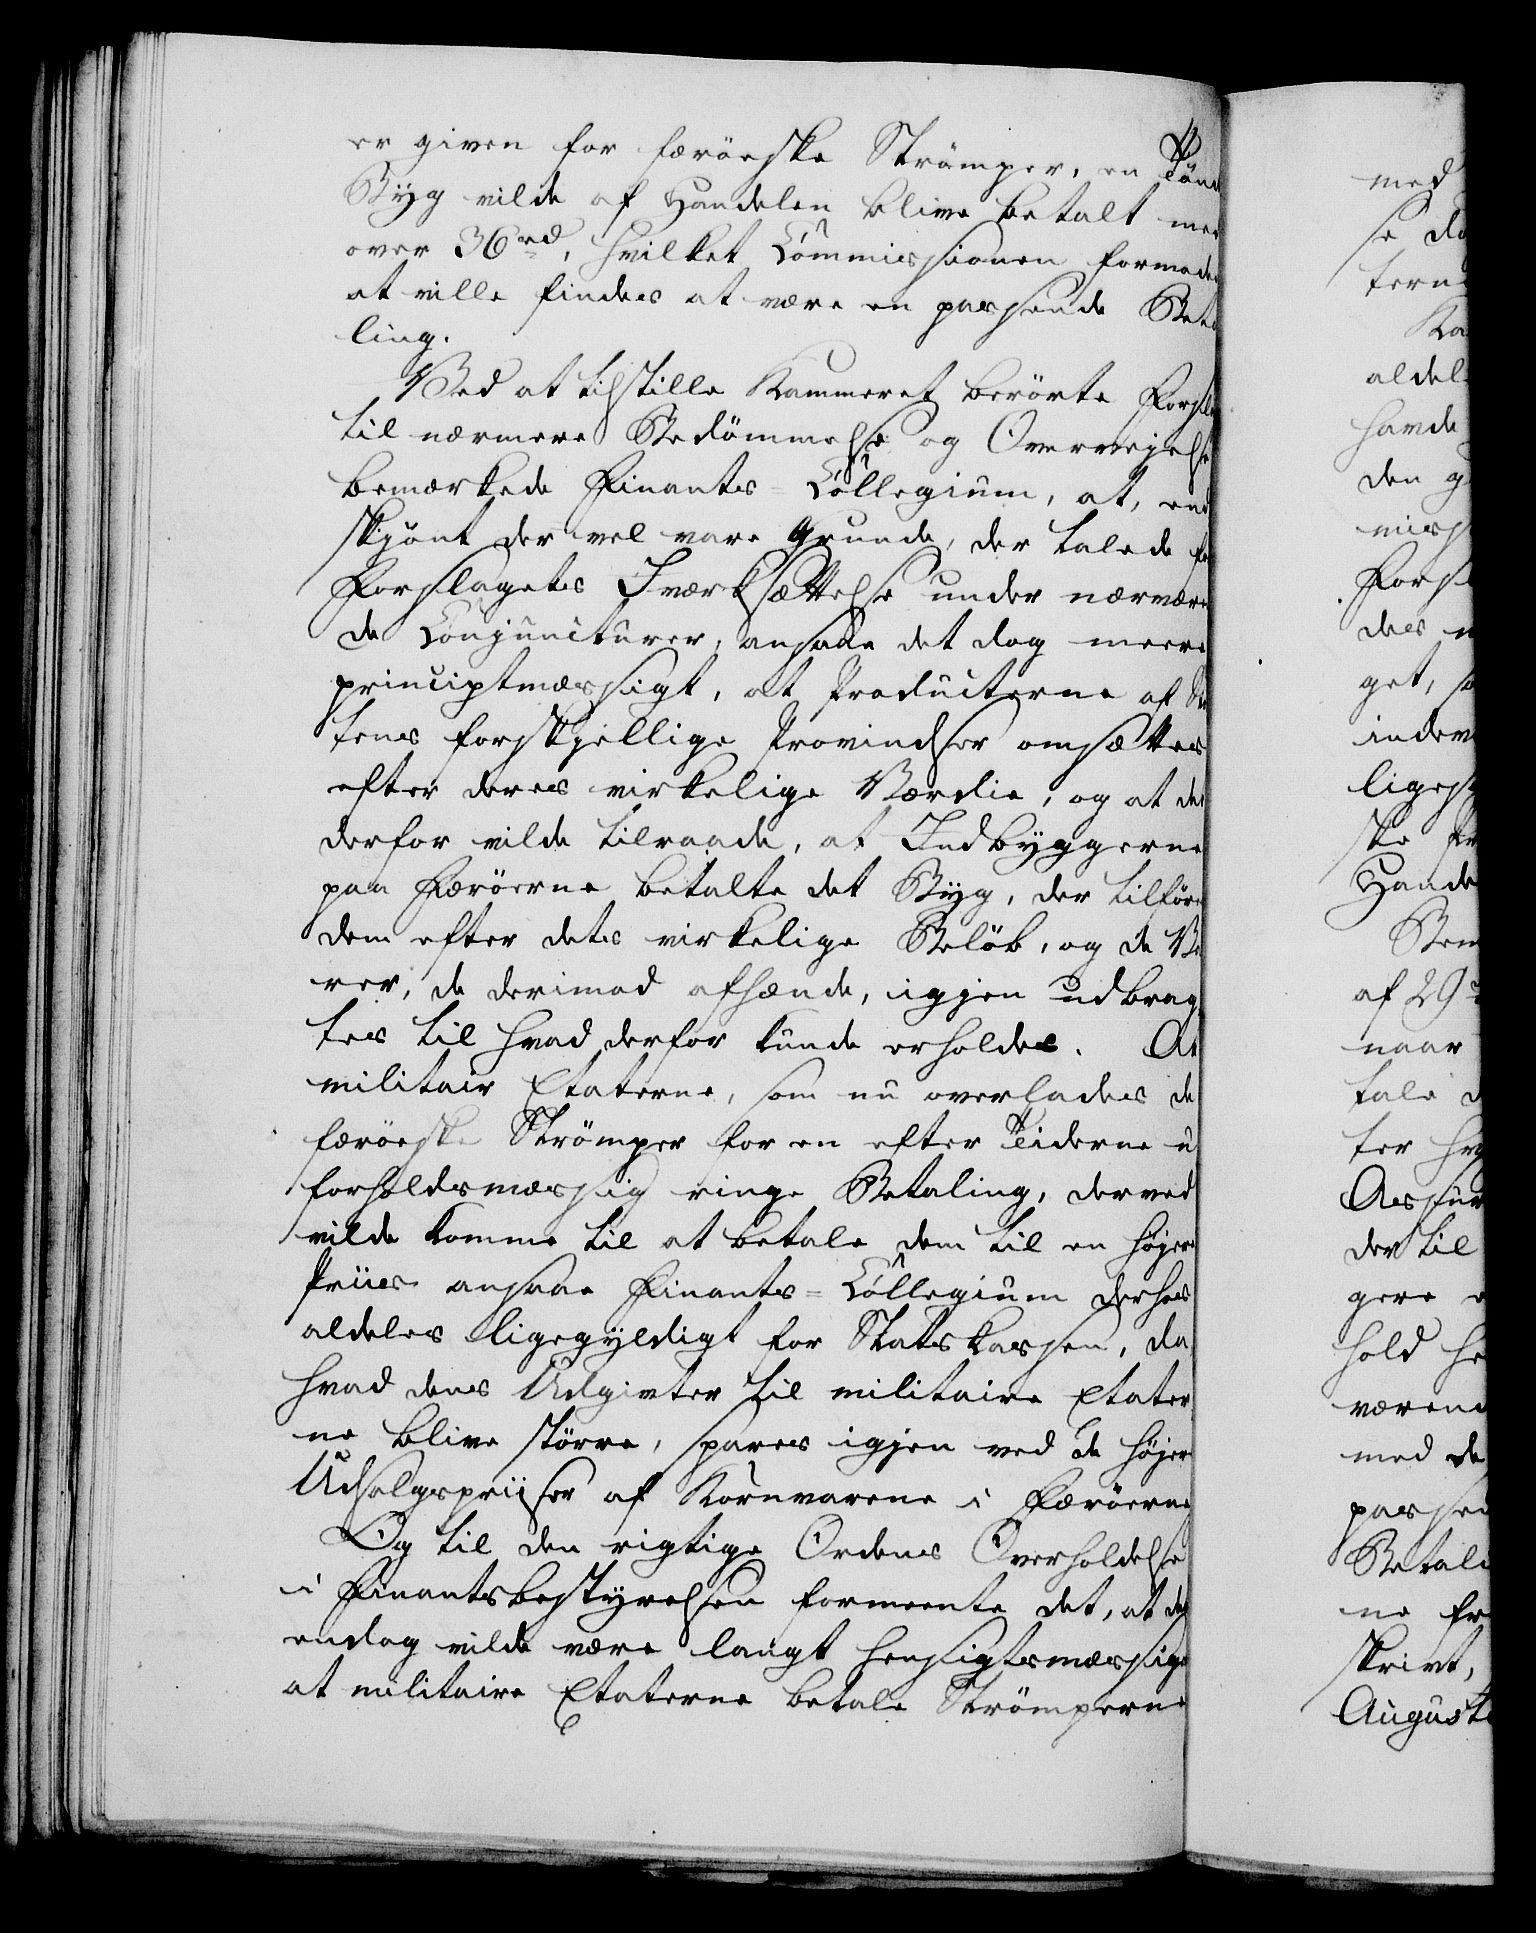 er given for færöeske Strömper, en Tönd
Byg vilde af Handelen blive betalt med
over 36 rd, hvilket Commissionen formode
at ville findes at være en passende Beta
ling.
Ved at tilstille Kammeret berörte Forsla
til nærmere Bedömmelse og Overvejelse
bemærkede Finants-Collegium, at, end
skjönt der vel vare Grunde, der talede fo
Forslagets Iværksættelse under nærvære
de Conjuncturer, ansaae det dog meere
principtmæssigt, at Producterne af Sta
tens forskjellige Provindser omsættes
efter deres virkelige Værdie, og at det
derfor vilde tilraade, at Indbyggerne
paa Færöerne betalte det Byg, der tilföre
dem efter dets virkelige Belöb, og de Va
rer, de derimod afhænde, igjen udbrag
tes til hvad derfor kunde erholdes. At
militair Etaterne, som nu overlades de
færöeske Strömper for en efter Tiderne u
forholdsmæssig ringe Betaling, derved
vilde komme til at betale dem til en höjere
Priis ansaae Finants-Collegium derhos
aldeles ligegyldigt for Statskassen, da
hvad dens Udgivter til militaire Etater
ne blive större, spares igjen ved de höjere
Udsalgspriiser af Kornvarene i Færöerne
Og til den rigtige Ordens Overholdelse
i Finantsbestyrelsen formeente det, at det
endog vilde være langt hensigtsmæssige
at militaire Etaterne betale Strömperne
med
se
tern
Ka
aldel
havde
den g
miss
Forsl
des
get,
indv
ligest
ske
Hande
Bem
af 29
naar
tale
ter
Assur
der til
gere
hold
værend
med de
passen
Betali
ne
skrivt,
Auguste